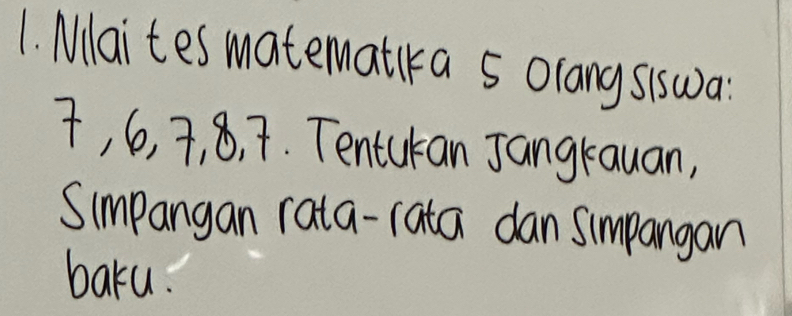 1. Nilai tes matematika 5 orang siswa:
7, 6, 7, 8, 7. Tentukan Jangkauan,
Simpangan rata-rata dan simpangan
baku.